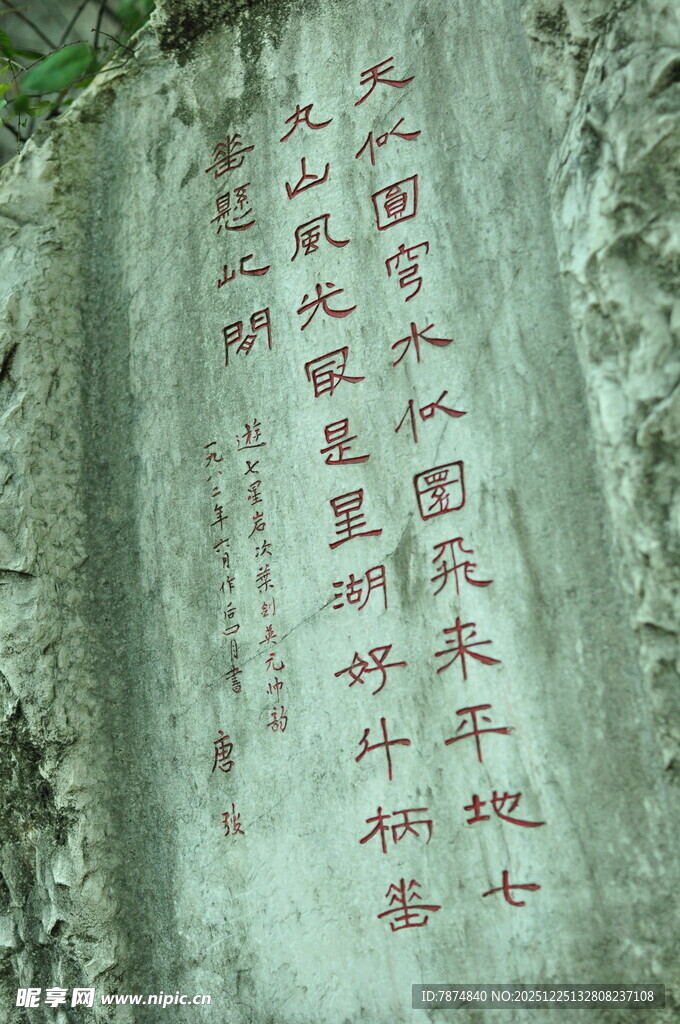 天似圓穹水似圜飛来平地七
丸山風光冣是星湖好斗柄垂
垂懸此間
遊七星岩次葉剑英元帅韵
一九八二年六月作后四月書 唐弢
昵享网 www.nipic.cn
ID:7874840 NO:20251225132808237108